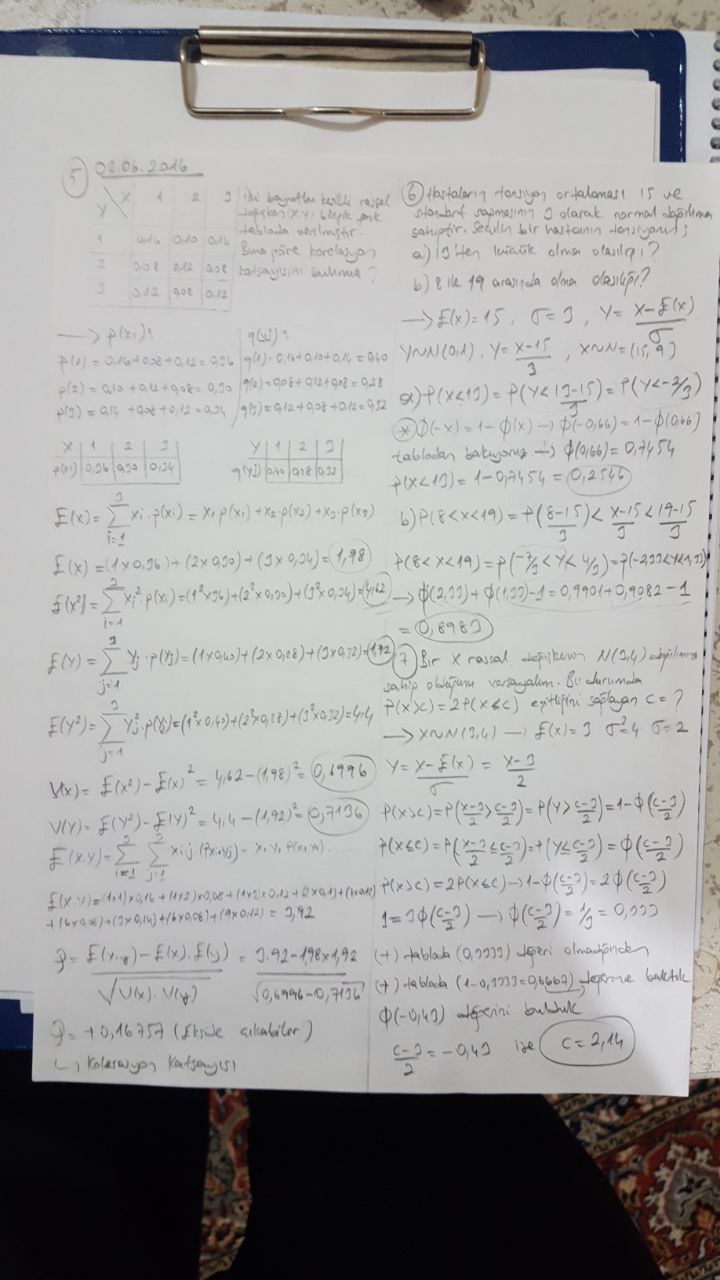 5 02.06.2016
Y \ X 1 2 3
1 0,16 0,10 0,14
2 0,08 0,12 0,08
3 0,12 0,08 0,12
iki boyutlu kesikli rassal
değişken (X,Y)
tabloda verilmiştir.
Buna göre korelasyon
katsayısını bulunuz?
→ p(xi)?
p(1) = 0,16+0,08+0,12=0,36
p(2) = 0,10+0,12+0,08=0,30
p(3) = 0,14+0,08+0,12=0,34
q(yj)?
q(1)=0,16+0,10+0,14=0,40
q(2)=0,08+0,12+0,08=0,28
q(3)=0,12+0,08+0,12=0,32
X 1 2 3
p(xi) 0,36 0,30 0,34
Y 1 2 3
q(yj) 0,40 0,28 0,32
E(x) = 3 Σ i=1 xi.p(xi) = x1.p(x1) + x2.p(x2) + x3.p(x3)
E(x) = (1x0,36)+(2x0,30)+(3x0,34)=1,98
E(x²) = Σ i=1 xi².p(xi) = (1²x36)+(2²x0,30)+(3²x0,34)=4,62
E(Y) = 3 Σ j=1 Yj.p(Yj)=(1x0,40)+(2x0,28)+(3x0,32)=1,92
E(Y²) = 3 Σ j=1 Yj².p(Yj)=(1²x0,40)+(2²x0,28)+(3²x0,32)=4,4
V(x) = E(x²) - E(x)² = 4,62-(1,98)² = 0,6996
V(Y) = E(Y²) - E(Y)² = 4,4-(1,92)² = 0,7136
E(X.Y) = Σ i=1 Σ j=1 xij.(Pxi,yj) =
E(X.Y)=(1x1)x0,16+(1x2)x0,08+(1x3)x0,12+(2x0,1)+(4x0,12)
+(6x0,08)+(3x0,14)+(6x0,08)+(9x0,12) = 3,92
ρ = E(x,y) - E(x).E(y) / √V(x).V(y) = 3.92-1,98x1,92 / √0,6996-0,7136
ρ = +0,16757 (Eksi de çıkabilir)
↳ Kolerasyon Katsayısı
6 Hastaların tansiyon ortalaması 15 ve
standart sapmasının 3 olarak normal dağılıma
sahiptir. Seçilen bir hastanın tansiyonun;
a) 13'ten küçük olma olasılığı?
b) 8 ile 19 arasında olma olasılığı?
→ E(x)=15, σ=3, Y = X-E(x) / σ
Y~N(0,1), Y = X-15 / 3, X~N=(15,9)
a) P(X<13) = P(Y< 13-15 / 3) = P(Y<-2/3)
* Φ(-x) = 1-Φ(x) → Φ(-0,66)=1-Φ(0,66)
tablodan bakıyoruz → Φ(0,66)=0,7454
P(X<13)=1-0,7454=0,2546
b) P(8<X<19)=P(8-15 / 3 < X-15 / 3 < 19-15 / 3)
P(8<X<19)=P(-7/3<Y<4/3)=P(-2,33<Y<1,33)
→ Φ(2,33)+Φ(1,33)-1=0,9901+0,9082-1
= 0,8983
7 Bir X rassal değişkenin N(3,4) dağılımına
sahip olduğunu varsayalım. Bu durumda
P(X>c) = 2P(X≤c) eşitliğini sağlayan c=?
→ X~N(3,4) → E(x)=3 σ²=4 σ=2
Y = X-E(x) / σ = X-3 / 2
P(X>c)=P(X-3 / 2 > c-3 / 2)=P(Y> c-3 / 2)=1-Φ(c-3 / 2)
P(X≤c)=P(X-3 / 2 ≤ c-3 / 2)=P(Y≤ c-3 / 2)=Φ(c-3 / 2)
P(X>c)=2P(X≤c)→1-Φ(c-3 / 2)=2Φ(c-3 / 2)
1=3Φ(c-3 / 2) → Φ(c-3 / 2)=1/3=0,333
(+) tabloda (0,3333) değeri olmadığından
(+) tabloda (1-0,3333=0,6667) değerine baktık
Φ(-0,43) değerini bulduk
c-3 / 2 = -0,43 ise c=2,14